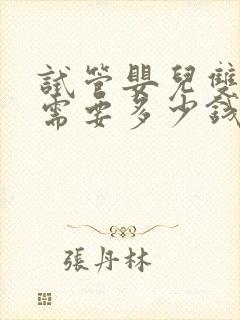 試管嬰兒雙
需要多少錢
張丹林